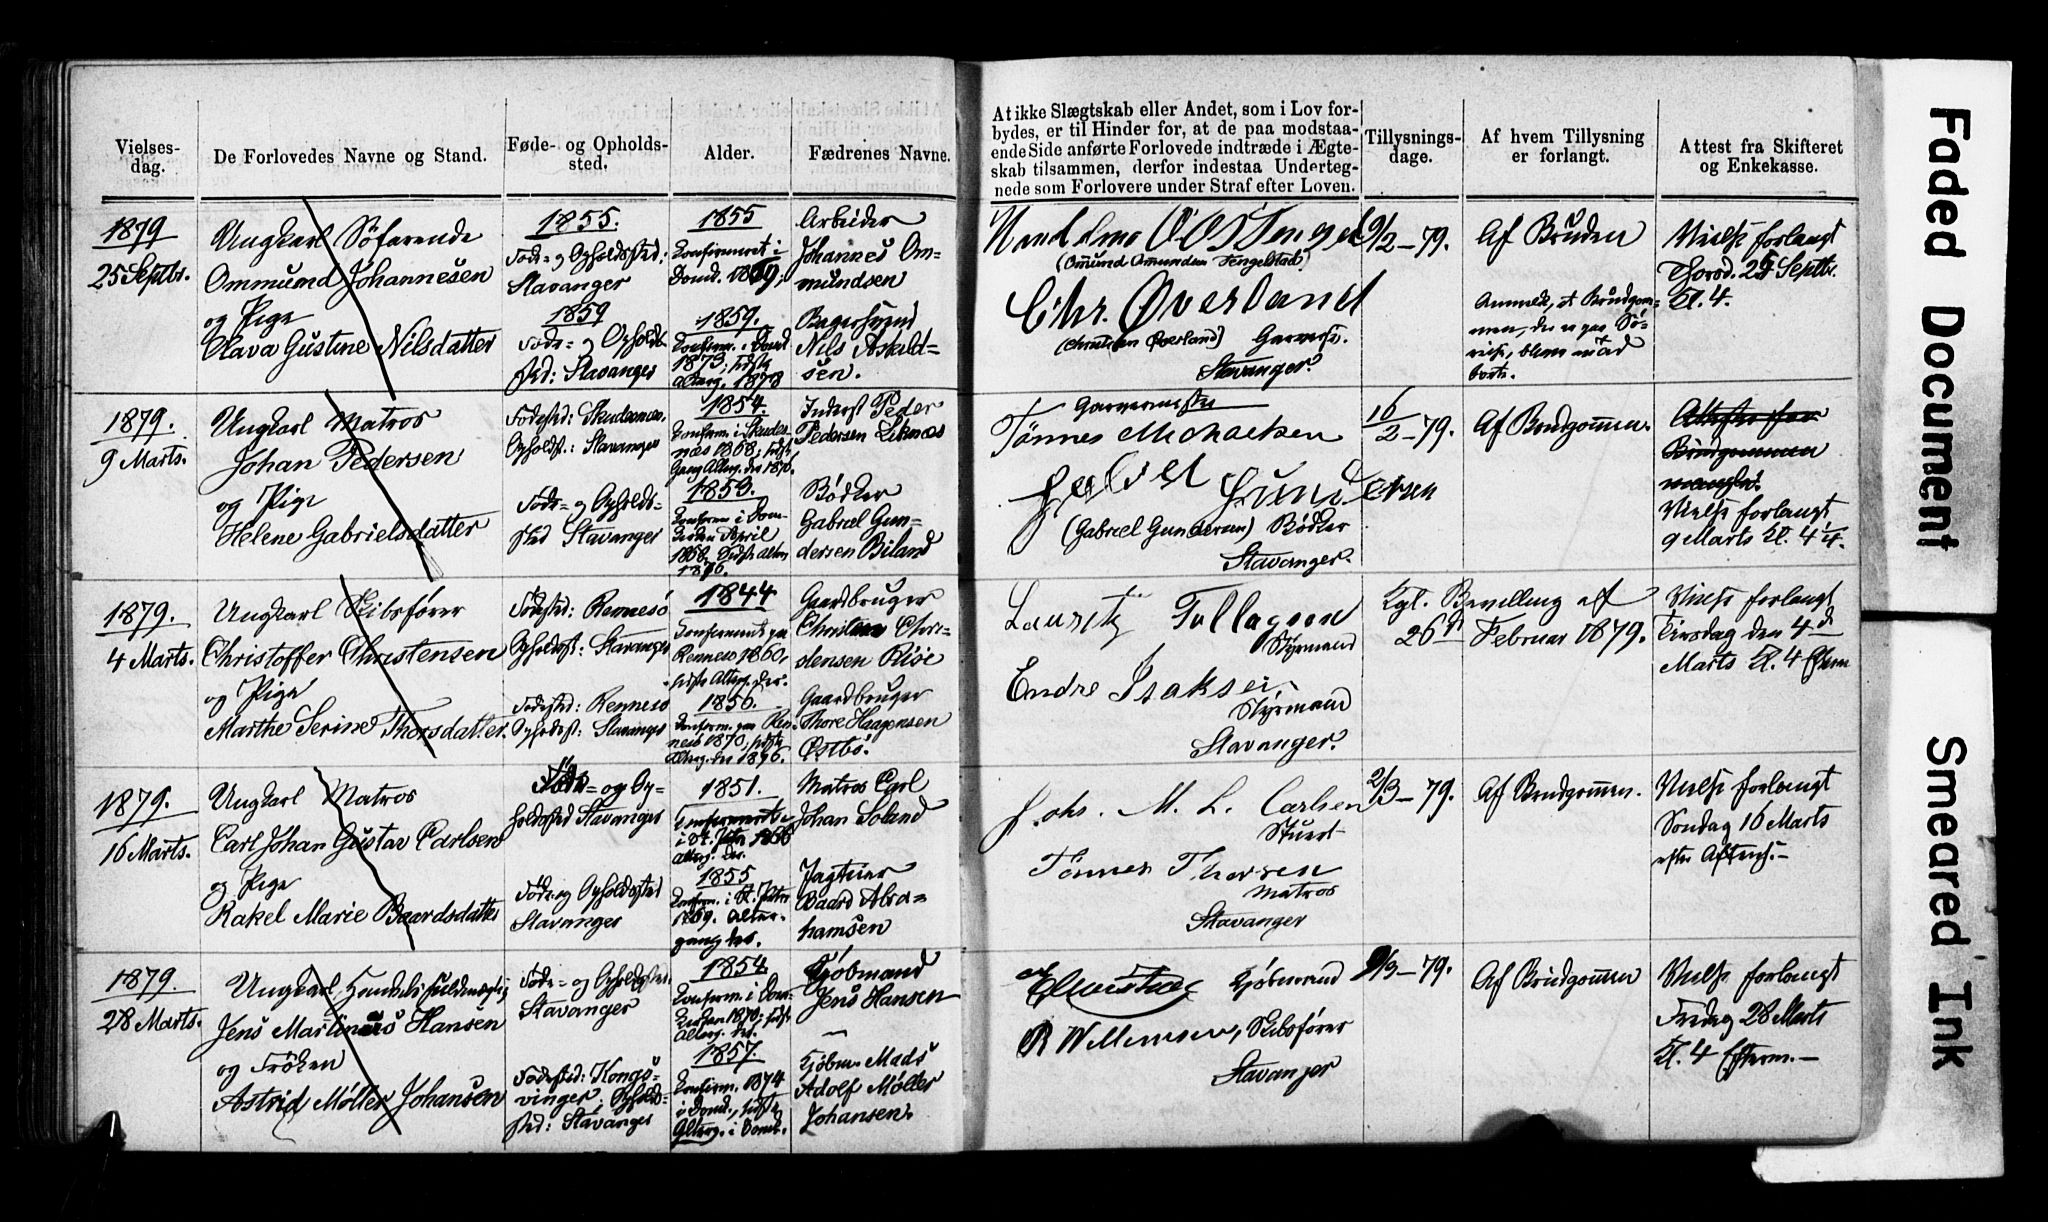 Vielses-
dag.
De Forlovedes Navne og Stand.
Føde- og Opholds-
sted.
Alder.
Fædrenes Navne.
At ikke Slægtskab eller Andet, som i Lov for-
bydes, er til Hinder for, at de paa modstaa-
ende Side anførte Forlovede indtræde i Ægte-
skab tilsammen, derfor indestaa Underteg-
nede som Forlovere under Straf efter Loven.
Tillysnings-
dage.
Af hvem Tillysning
er forlangt.
Attest fra Skifteret
og Enkekasse.
1879
25 Septbr.
Ungkarl Søfarende
Ommund Johannesen
og Pige
Olava Gustine Nilsdatter
1855.
Føde- og Opholdssted:
Stavanger
1859
Føde- og Opholds-
sted: Stavanger
1855
Konfirmeret i
Domk. 1869;
1859.
Konfirm. i Domk
1873; sidste
Alterg. 1878
Arbeider
Johannes Om-
mundsen
Bagersvend
Nils Askild-
sen.
(Omund Omundsen Tengelstad)
Chr. Øverland
(Christian Øverland) Garverm.
Stavanger.
9/2-79.
Af Bruden
Anmærk, at Brudgom-
men, der er paa Sø-
reise, blev
borte.
Vielse forlangt
Thorsd. 25 Septbr.
Kl. 4.
1879.
9 Marts.
Ungkarl Matros
Johan Pedersen
og Pige
Helene Gabrielsdatter
Fødested: Skudesnæs.
Opholdst.: Stavanger
Føde- og Opholds-
sted Stavanger
1854.
Konfirm. i Skudes-
næs 1868; sidst
Gang Alterg. des 1876.
1853.
Konfirm. i Dom-
kirken April
1868. Sidste Alterg.
1876.
Inderst Peder
Pedersen Liknæs
Bødker
Gabriel Gun-
dersen Biland
Garvermester
Tønnes Michaelsen
(Gabriel Gundersen) Bødker
Stavanger.
16/2-79.
Af Brudgommen.
Attester for
Brudgommen
mangler.
Vielse forlangt
9 Marts Kl. 4 1/4.
1879.
4 Marts.
Ungkarl Skibsfører
Christoffer Christensen
og Pige
Marthe Serine Thorsdatter.
Fødested: Rennesø
Opholdst: Stavanger
Fødested: Rennesø
Opholdst: Stavanger
1844
Konfirmeret paa
Rennesø 1860,
sidste Alterg. der.
1856.
Konfirm. paa Ren-
nesø 1870; sidste
Alterg. des 1876.
Gaardbruger
Christen Chri-
stensen Riise
Gaardbruger
Thore Haagensen
Østbø.
Lauritz Tollagsen
Styrmand
Endre Isaksen
Styrmand
Stavanger.
Kgl. Bevilling af
26de Februar 1879.
Vielse forlangt
Tirsdag den 4de
Marts Kl. 4 Efterm
1879.
16 Marts.
Ungkarl Matros
Carl Johan Gustav Carlsen
og Pige
Rakel Marie Baardsdatter
Føde- og Op-
holdssted Stavanger
Føde- og Opholdssted
Stavanger
1851.
Konfirmeret
i St. Petri 1866
Alterg. der.
1855
Konfirm. i St. Petri
1869. Alter-
gang der.
Matros Carl
Johan Soland
Jagteier
Baard Abra-
hamsen
Johs. M. L. Carlsen
Stuert
Tønnes Thorsen
Matros
Stavanger
2/3-79.
Af Brudgommen.
Vielse forlangt
Søndag 16 Marts
efter Aftens.-
1879.
28 Marts.
Ungkarl Handelsfuldmægtig
Jens Martinius Hansen
og Frøken
Astrid Møller Johansen
Føde- og Opholdssted
Stavanger
Fødested: Kongs-
vinger; Opholds-
sted: Stavanger
1854
Konfirm. i Dom-
kirken 1870; sidst
Alterg. der.
1857.
Konfirm. 1874
i Domk., sidste
Alterg. i Domk.
Kjøbmand
Jens Hansen
Kjøbm. Mads
Adolf Møller
Johansen.
Kjøbmand
R Willemsen, Skibsfører
Stavanger
9/3-79.
Af Brudgommen
Vielse forlangt
Fredag 28 Marts
Kl. 4 Efterm.-
Faded Document
Smeared Ink